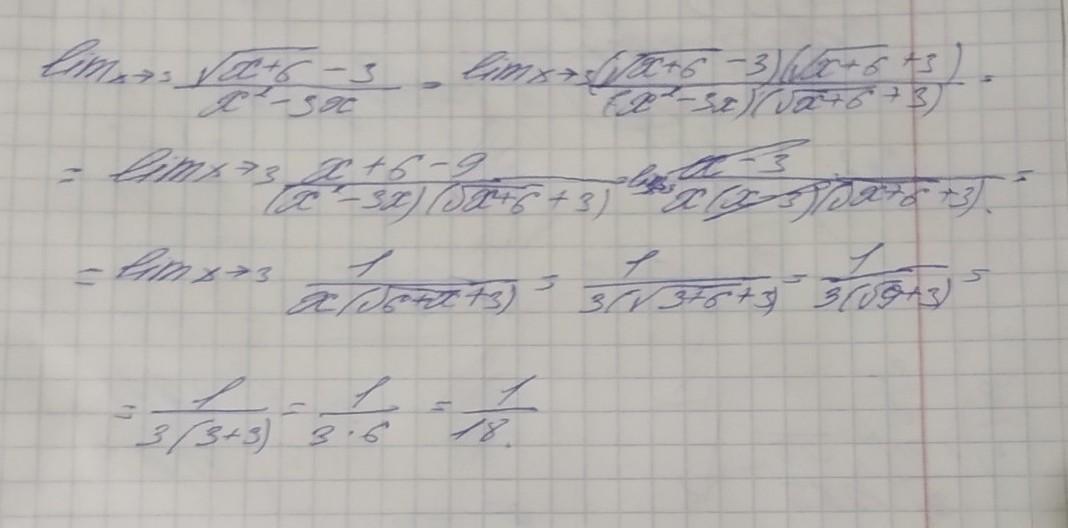 lim x→3 (√(x+6) − 3)/(x² − 3x) = lim x→3 ((√(x+6) − 3)(√(x+6) + 3))/((x² − 3x)(√(x+6) + 3)) =
= lim x→3 (x + 6 − 9)/((x² − 3x)(√(x+6) + 3)) = lim x→3 (x − 3)/(x(x − 3)(√(x+6) + 3)) =
= lim x→3 1/(x(√(6+x) + 3)) = 1/(3(√(3+6) + 3)) = 1/(3(√9 + 3)) =
= 1/(3(3+3)) = 1/(3·6) = 1/18.